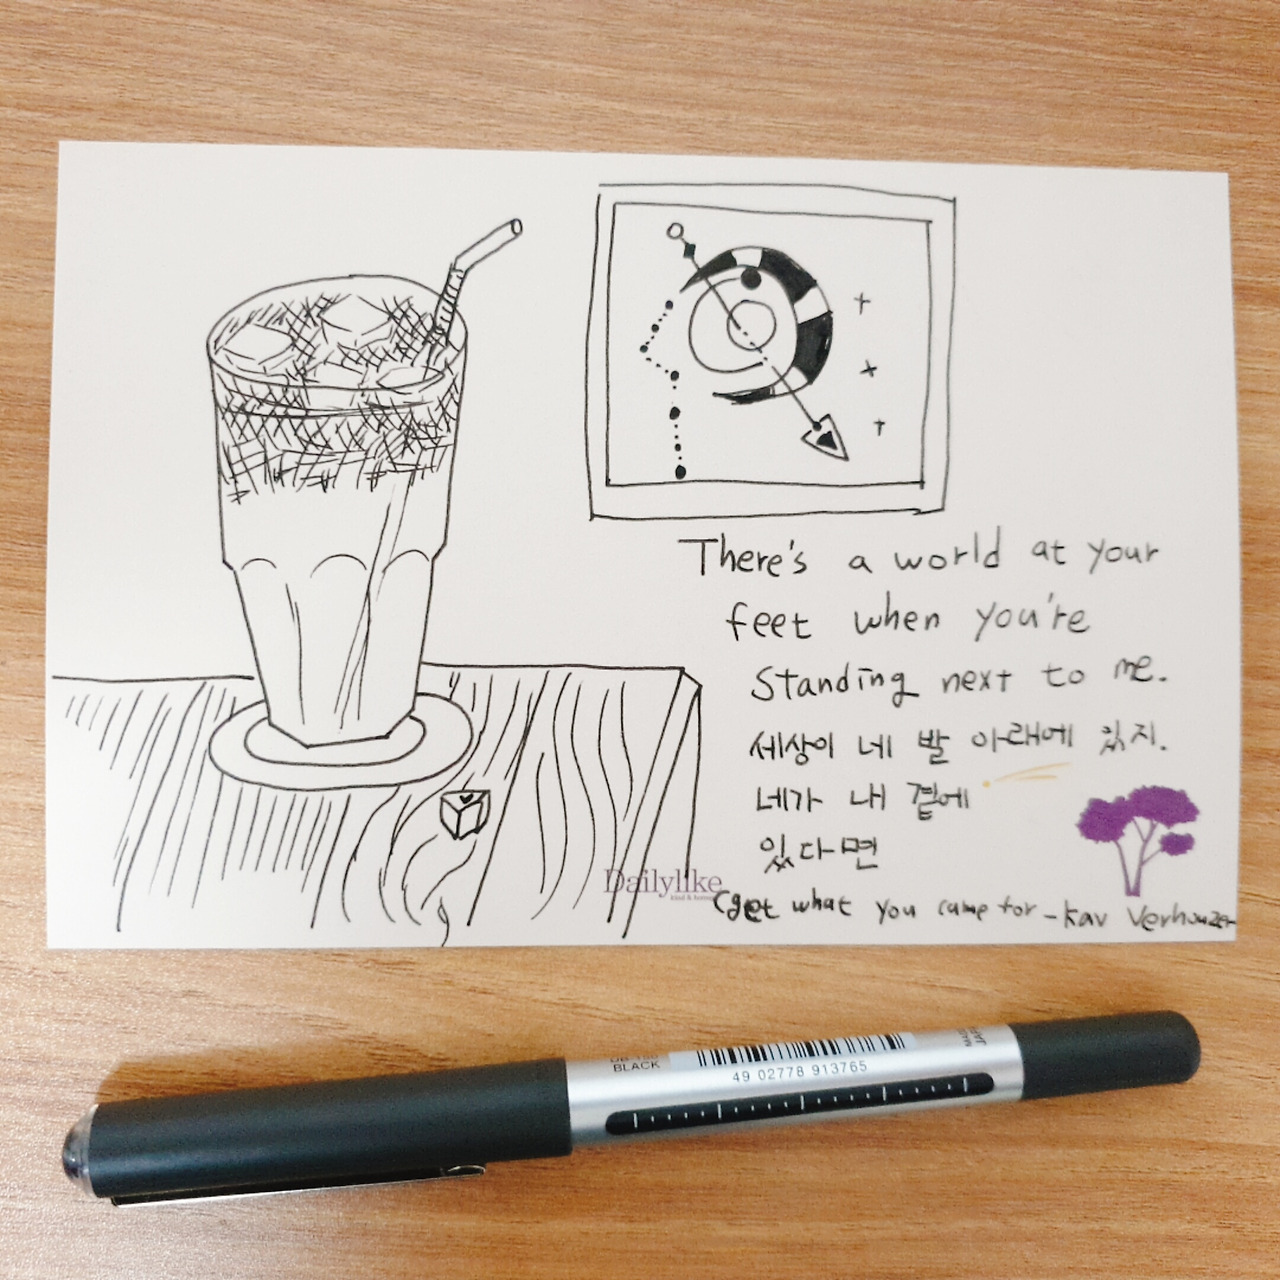 There's a world at your
feet when you're
Standing next to me.
세상이 네 발 아래에 있지.
네가 내 곁에
있다면
Dailylike
(get what you came for - Kav Verhouzer
BLACK
49 02778 913765